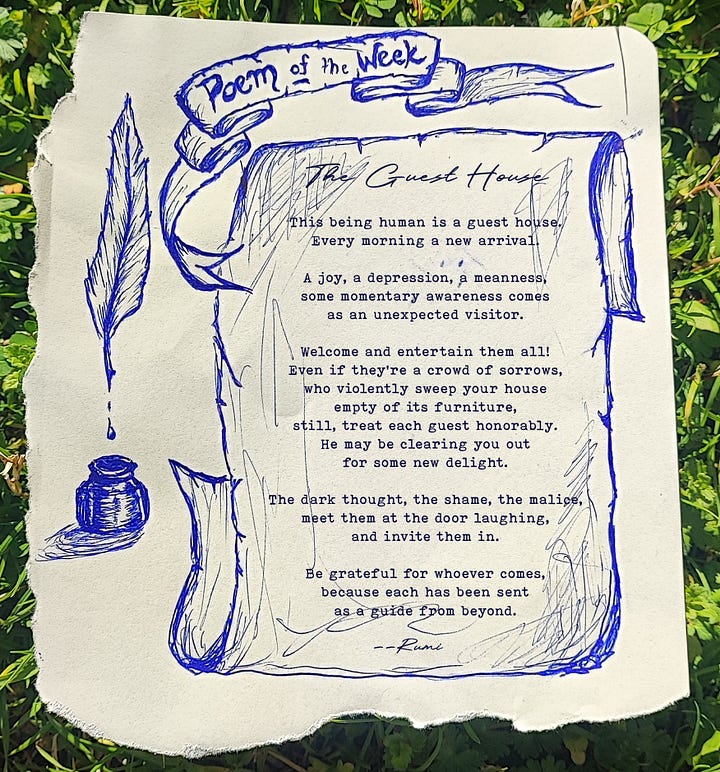 Poem of the Week
The Guest House
This being human is a guest house.
Every morning a new arrival.
A joy, a depression, a meanness,
some momentary awareness comes
as an unexpected visitor.
Welcome and entertain them all!
Even if they're a crowd of sorrows,
who violently sweep your house
empty of its furniture,
still, treat each guest honorably.
He may be clearing you out
for some new delight.
The dark thought, the shame, the malice,
meet them at the door laughing,
and invite them in.
Be grateful for whoever comes,
because each has been sent
as a guide from beyond.
--Rumi